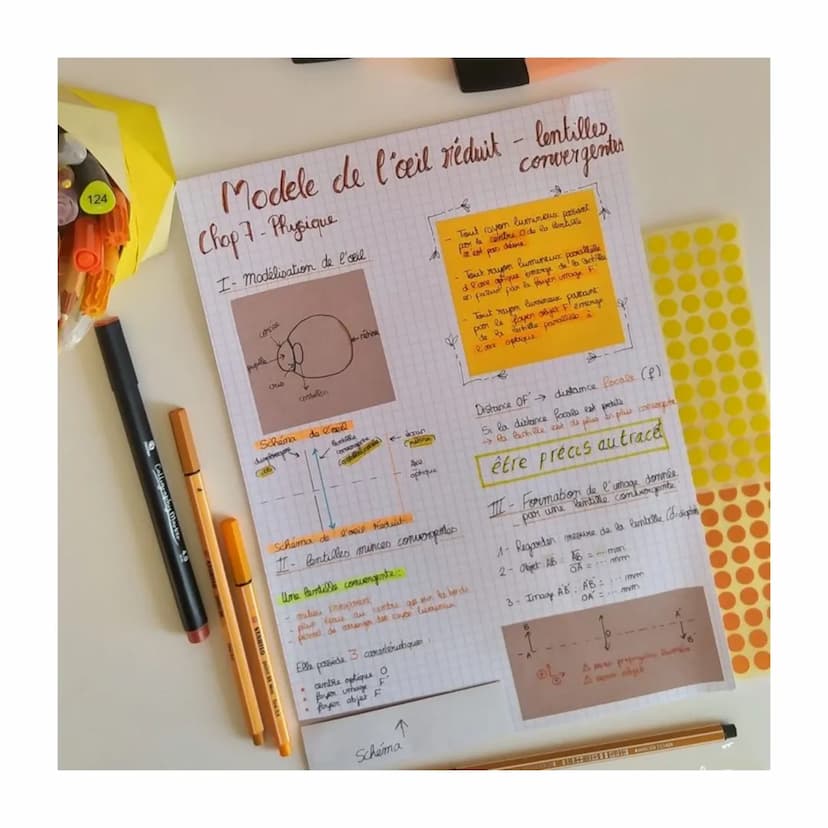 Modele de l'œil réduit - lentilles
convergentes
Chap 7 - Physique
I - Modélisation de l'œil
cornée
pupille
iris
cristallin
rétine
Schéma de l'œil
diaphragme
iris
lentille
convergente
écran
rétine
Axe
optique
Schéma de l'œil réduit
II - Lentilles minces convergentes
Une lentille convergente :
- milieu transparent
- plus épais au centre que sur les bords
- permet de converger des rayons lumineux
Elle possède 3 caractéristiques :
• centre optique O
• foyer image F'
• foyer objet F
Schéma
- Tout rayon lumineux passant
par le centre O de la lentille
n'est pas dévié.
- Tout rayon lumineux parallèle
à l'axe optique émerge de la lentille
en passant par le foyer image F'.
- Tout rayon lumineux passant
par le foyer objet F émerge
de la lentille parallèle à
l'axe optique.
Distance OF' → distance focale (f')
Si la distance focale est petite
→ la lentille est de plus en plus convergente
être précis au tracé
III - Formation de l'image donnée
par une lentille convergente
1 - Regarder mesure de la lentille
2 - Objet AB AB = ... mm
OA = ... mm
3 - Image A'B' A'B' = ... mm
OA' = ... mm
B
A
O
A'
B'
⚠ sens propagation lumière
⚠ sens objet
124
Calligraphy Marker
STABILO